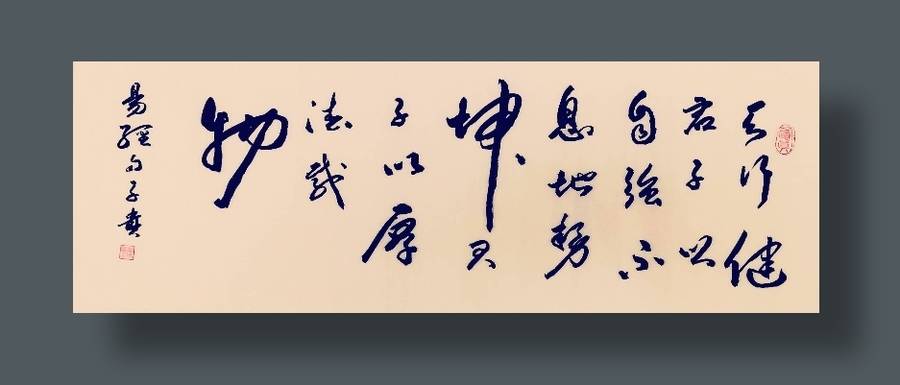 天行健
君子以
自強不
息地勢
坤君
子以厚
德載
物
易經句子貴